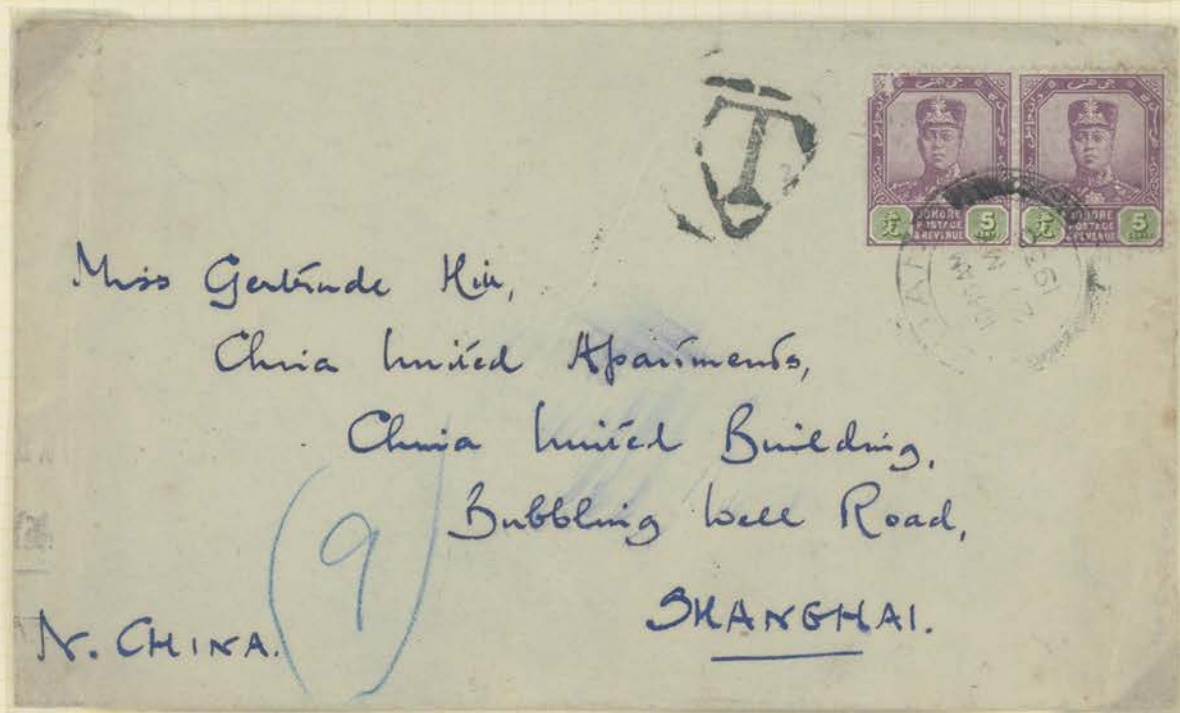 T
JOHORE
POSTAGE
& REVENUE
5
CENTS
JOHORE
POSTAGE
& REVENUE
5
CENTS
Miss Gertrude
China United Apartments,
China United Building,
Bubbling Well Road,
SHANGHAI.
N. CHINA.
9